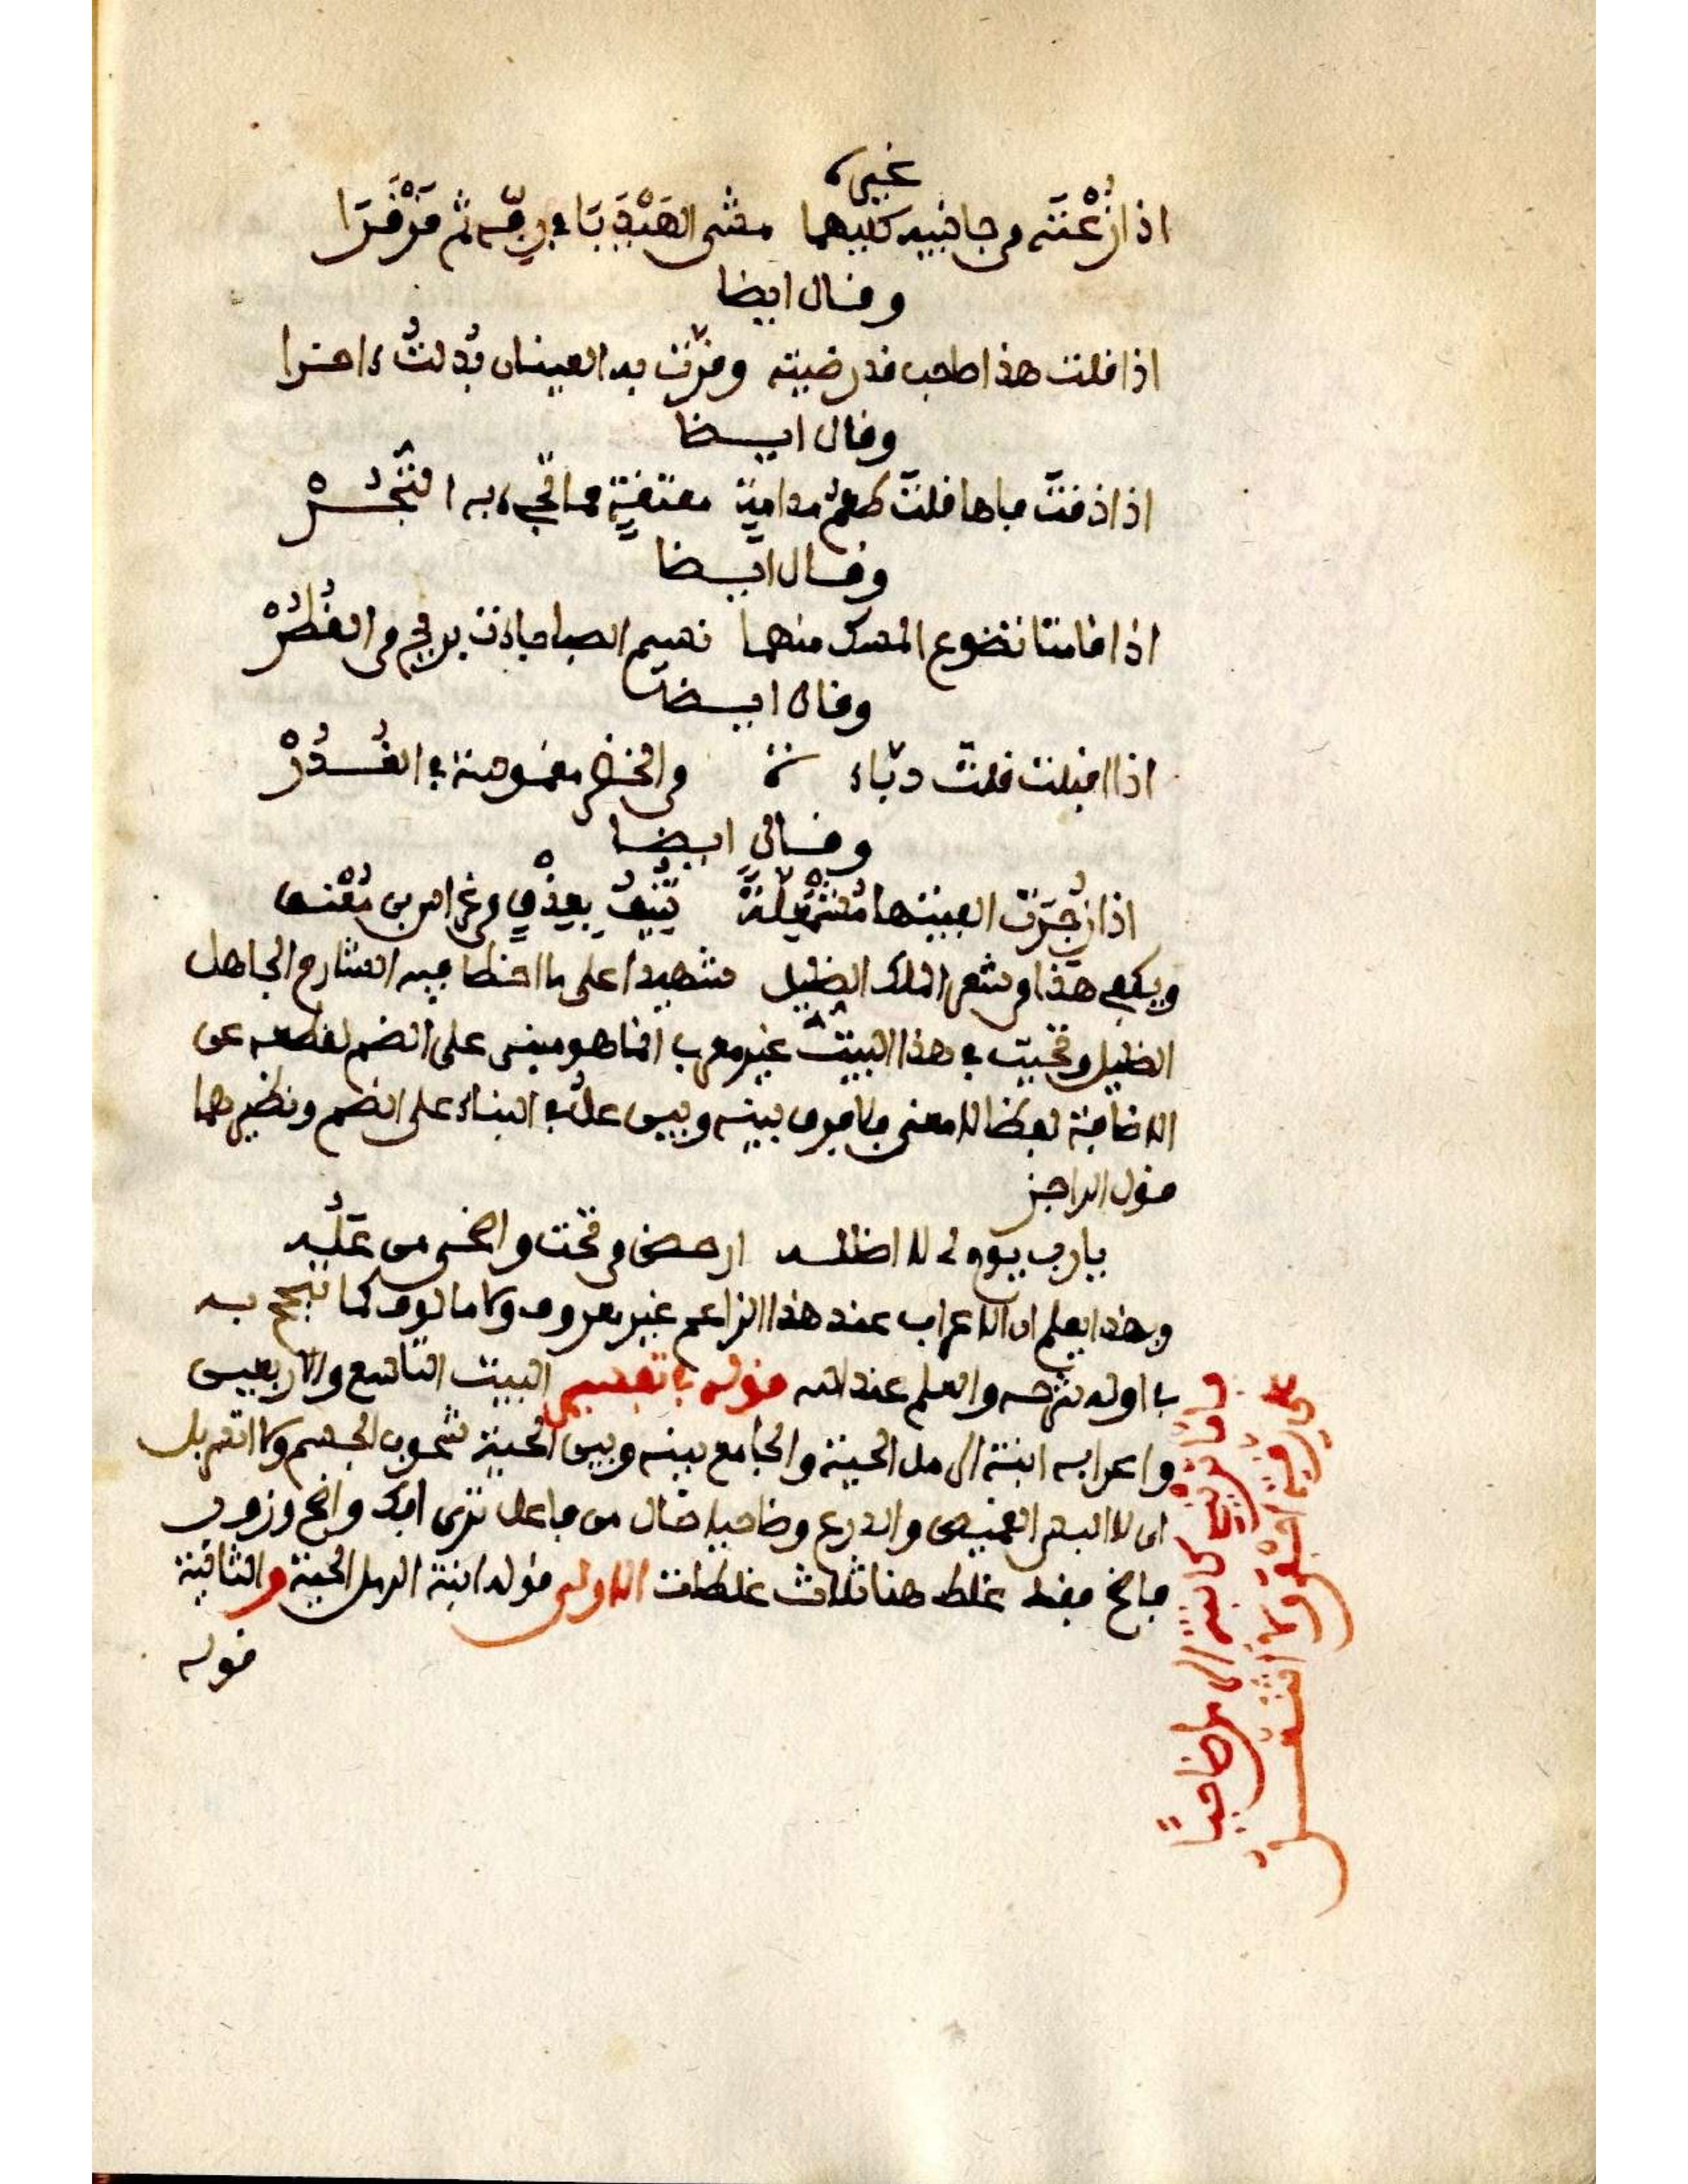 غيره
اذا زُعْتَه من جانبيه كليهما مشى الهَيْدَبَا في دفّه ثم فَرْفَرَا
وقال ايضا
اذا قلت هذا صاحب قد رضيته وقرّت به العينان بُدلتُ ءاخرا
وقال ايضا
اذا ذقتَ فاها قلتَ طعمُ مدامةٍ معتقةٍ مما تجيء به التُّجُرْ
وقال ايضا
اذا قامتا تضوع المسك منهما نسيم الصبا جاءت بريح من القُطُرْ
وقال ايضا
اذا اقبلت قلتَ دبّاءة من الخضر مغموسة في الغُدُرْ
وقال ايضا
اذا زُجرَت الفيتها مُشْمَعِلّةً تُنيفُ بعِذْقٍ من غراس بن مُعْنِق
ويكفي هذا من شعر الملك الضليل شهيدا على ما اخطا فيه الشارح الجاهل
الضليل وتحيتُ في هذا البيت غير معرب انما هو مبني على الضم لقطعه عن
الاضافة لفظا لا معنى ولا فرق بينه وبين علُ في البناء على الضم ونظيرهما
قول الراجز
يا رب يوم لى لا اظلله ارمض من تحت واضحى من عَلُه
وبهذا يعلم ان الاعراب عند هذا الزاعم غير معروف ولا مالوف كما تبجح به
في اول شرحه والعلم عند الله قوله في تفسير البيت التاسع والاربعين
واعرابه ابنة الرمل الحية والجامع بينه وبين الحية شحوب الجسم ولا اتسربل
اي لا البس القميص والدرع وضاحيا حال من فاعل ترى
فقد غلط هنا ثلاث غلطات الاولى قوله ابنة الرمل الحية والثانية
قوله
فاما تريني كابنة الرمل ضاحيًا
على رقة احفى ولا اتنعل